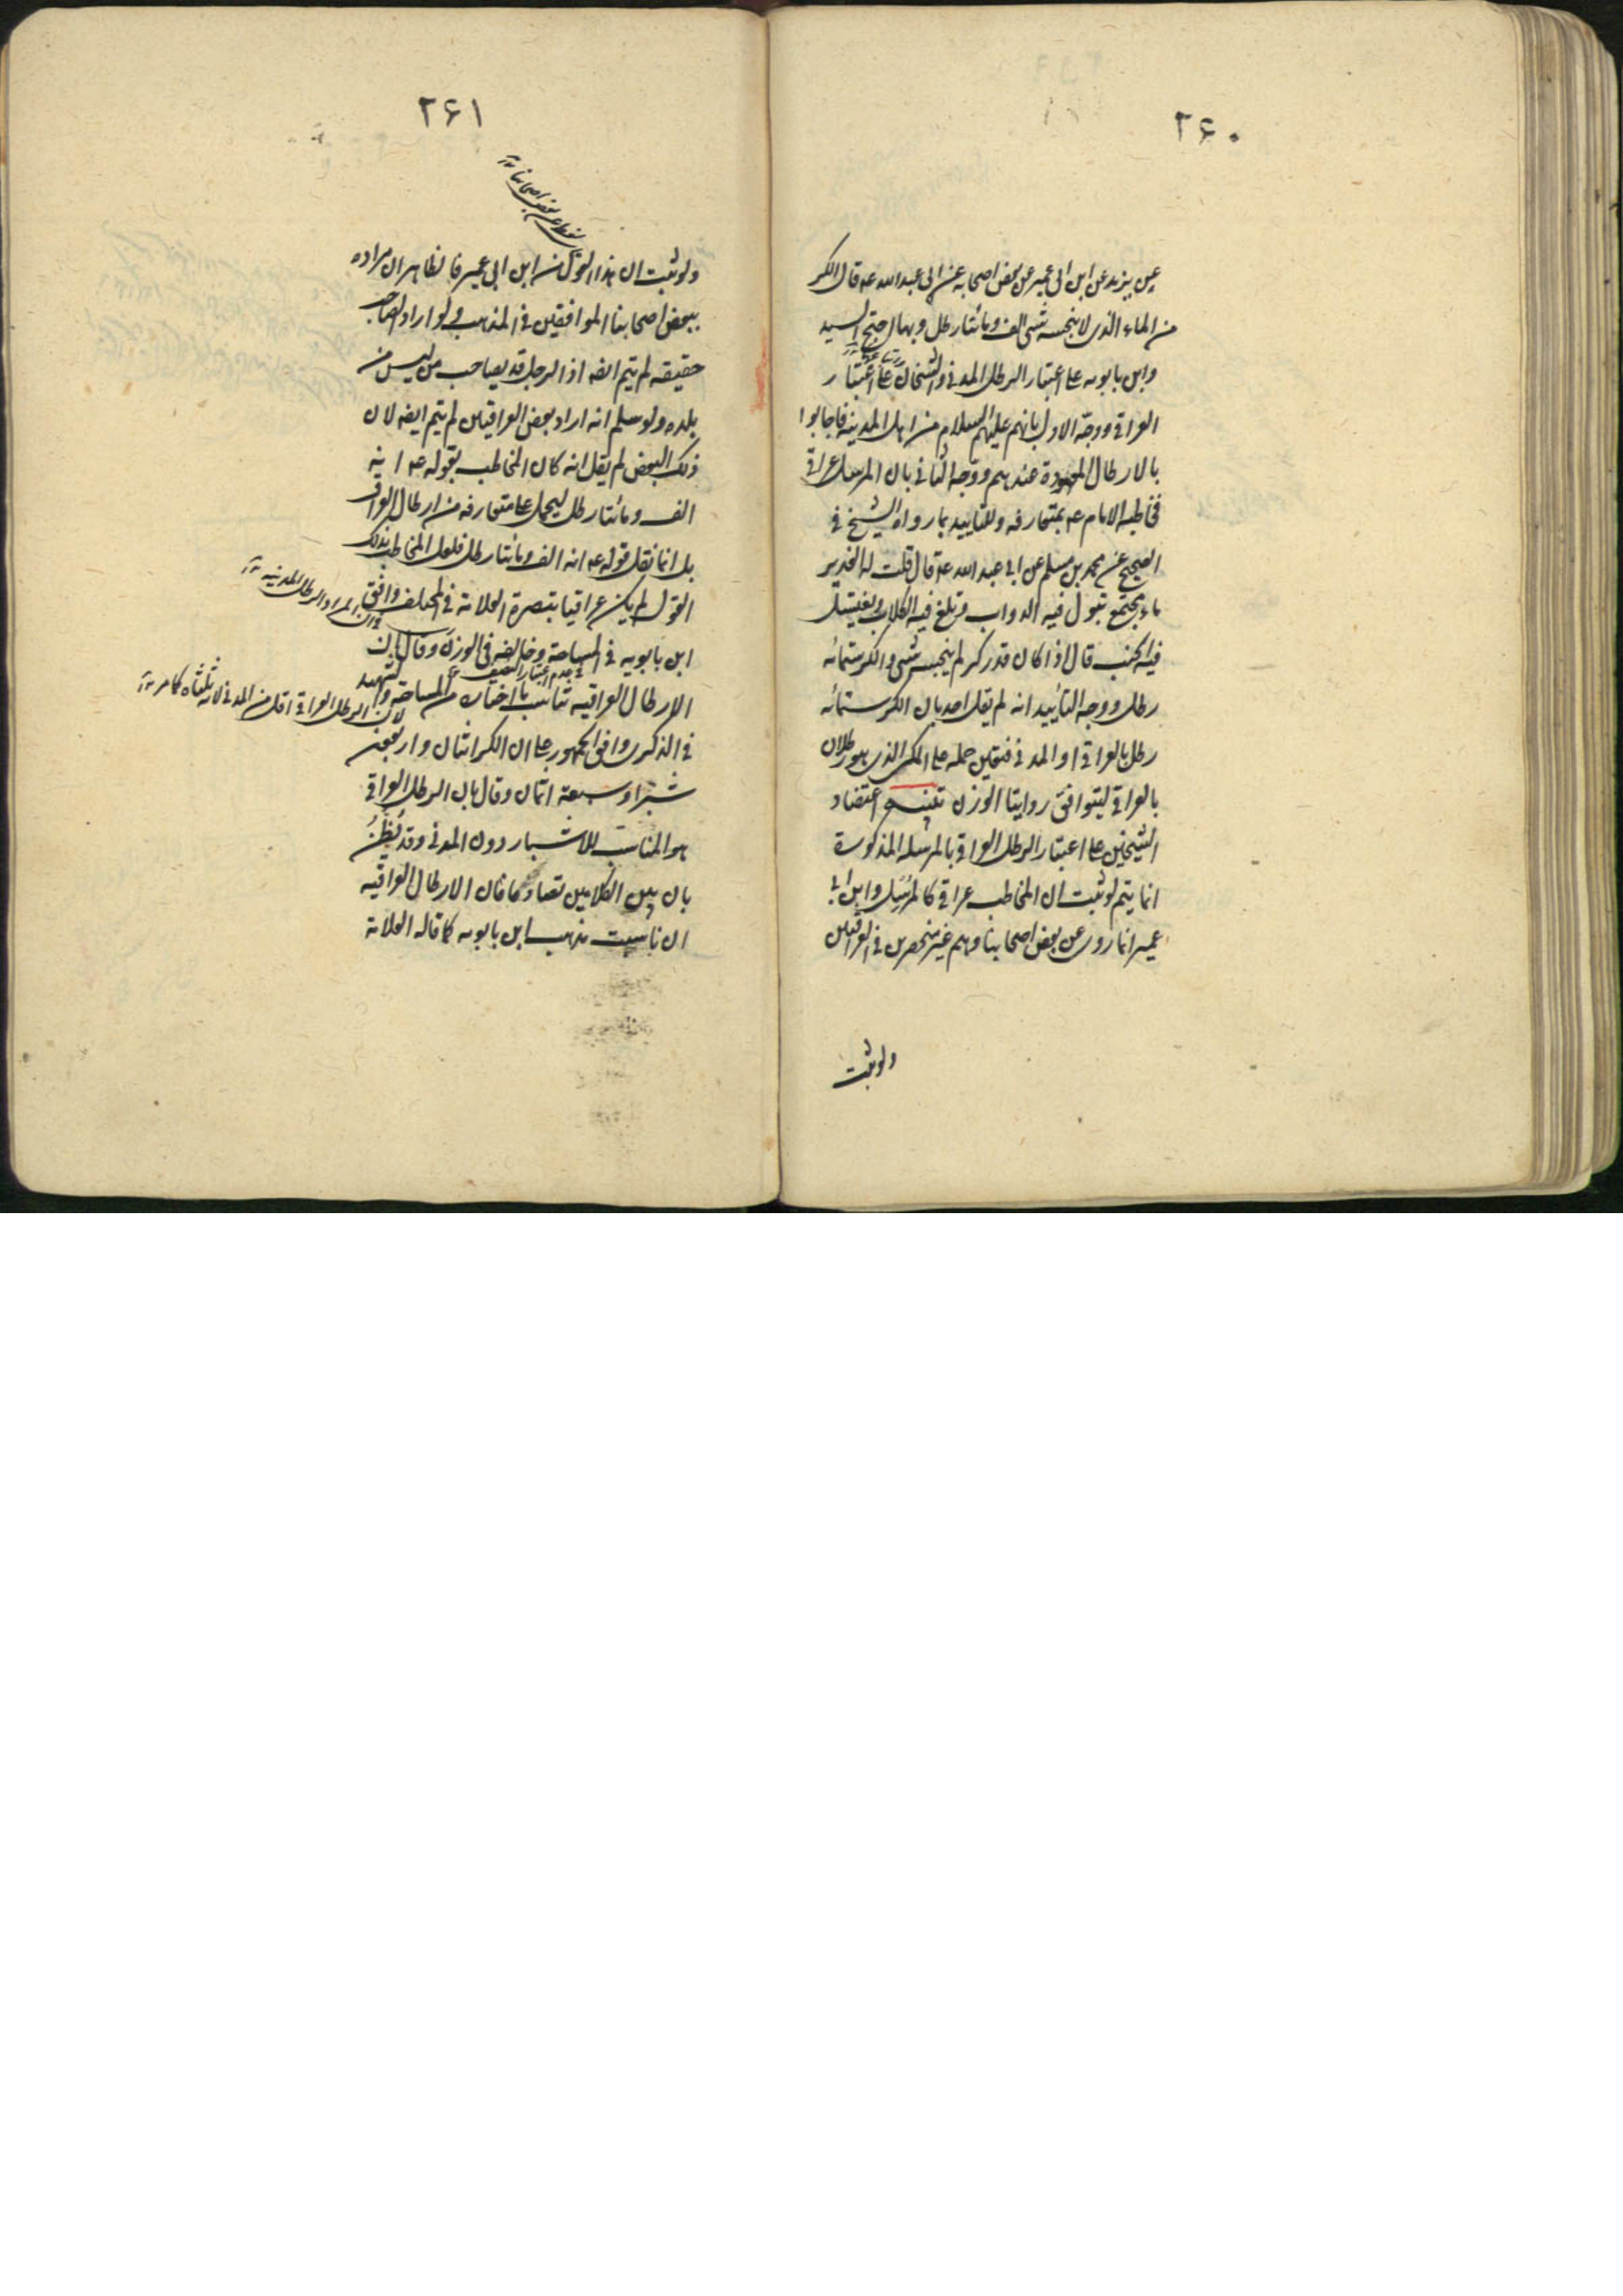 ۲۶۰
عن يزيد عن ابن ابى عمير عن بعض اصحابه عن ابى عبد الله عه قال الكر
من الماء الذى لا ينجسه شى الف ومائتا رطل وبها احتج السيد
وابن بابويه على اعتبار الرطل المدنى والشيخان على اعتبار
العراقى ووجه الاول بانهم عليهم السلام من اهل المدينة فاجابوا
بالارطال المعهودة عندهم ووجه الثانى بان المرسل عراقى
فخاطبه الامام عه بمتعارفه وللتاييد بما رواه الشيخ فى
الصحيح عن محمد بن مسلم عن ابى عبد الله عه قال قلت له الغدير
ماء مجتمع تبول فيه الدواب وتلغ فيه الكلاب ويغتسل
فيه الجنب قال اذا كان قدر كر لم ينجسه شى والكر ستمائه
رطل ووجه التأييد انه لم يقل احد بان الكر ستمائه
رطل بالعراقى او المدنى فتعين حمله على المكى الذى هو رطلان
بالعراقى ليتوافق روايتا الوزن تنبيه اعتضاد
الشيخين على اعتبار الرطل العراقى بالمرسله المذكورة
انما يتم لو ثبت ان المخاطب عراقى كالمرسل وابن ابى
عمير انما روى عن بعض اصحابنا وهم غير منحصرين فى العراقيين
ولو ثبت
۲۶۱
بعض اصحابنا
ولو ثبت ان هذا القول من ابن ابى عمير فالظاهر ان مراده
ببعض اصحابنا الموافقين فى المذهب ولو اراد الصاحب
حقيقه لم يتم ايضه اذ الرجل قد يصاحب من ليس من
بلده ولو سلم انه اراد بعض العراقيين لم يتم ايضه لان
ذلك البعض لم يقل انه كان المخاطب بقوله عه انه
الف ومائتا رطل ليحمل على متعارفه من ارطال العراق
بل انما نقل قوله عه انه الف ومائتا رطل فلعل المخاطب بذلك
القول لم يكن عراقيا تبصرة العلامة فى المختلف وافق
فى ان المراد الرطال المدنيه
ابن بابويه فى المساحة وخالفه فى الوزن وقال بان
فى عدم اعتبار النصف
الارطال العراقيه تناسب ما اختاره من المساحه والشهيد
لان الرطل العراقى اقل من المدنى لانه ثلثاه كما مر
فى الذكرى وافق الجمهور على ان الكر اثنان واربعون
شبرا وسبعة اثمان وقال بان الرطل العراقى
هو المناسب للاشبار دون المدنى وقد يُظَنُّ
بان بين الكلامين تضادا فان الارطال العراقيه
ان ناسبت مذهب ابن بابويه كما قاله العلامة